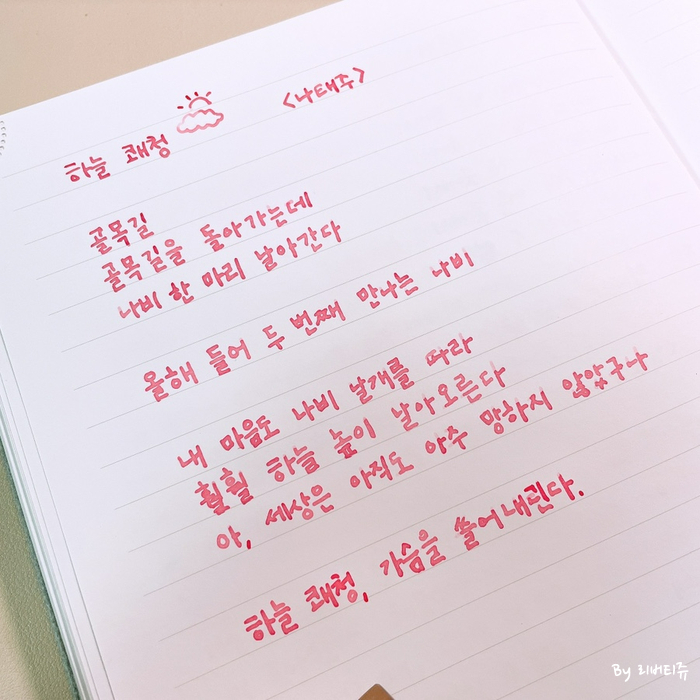 하늘 쾌청
<나태주>
골목길
골목길을 돌아가는데
나비 한 마리 날아간다
올해 들어 두 번째 만나는 나비
내 마음도 나비 날개를 따라
훨훨 하늘 높이 날아오른다
아, 세상은 아직도 아주 망하지 않았구나
하늘 쾌청, 가슴을 쓸어내린다.
By 리버티쥬